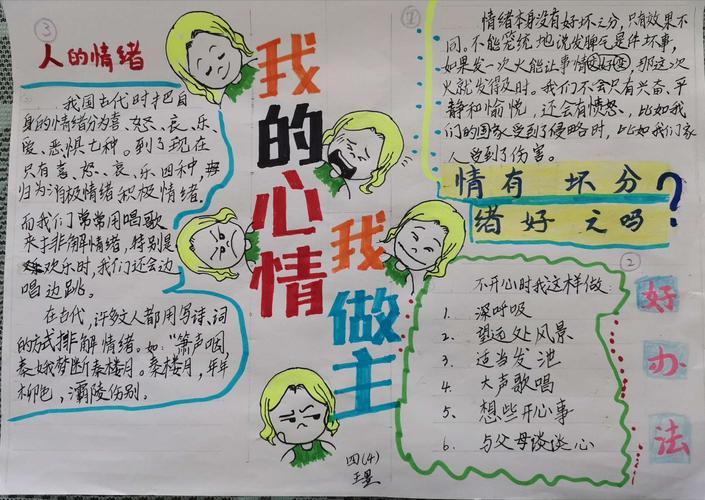 ③
人的情绪
我国古代时把自
身的情绪分为喜、怒、哀、乐、
爱、恶惧七种。到了现在
只有喜、怒、哀、乐四种,
归为消极情绪积极情绪.
而我们常常用唱歌
来排解情绪,特别是
欢乐时,我们还会边
唱边跳。
在古代,许多文人都用写诗、词
的方式排解情绪。如:"箫声咽,
秦娥梦断秦楼月。秦楼月,年年
柳色,灞陵伤别。
我的心情
我做主
四(4)
①
情绪本身没有好坏之分,只有效果不
同。不能笼统地说发脾气是件坏事,
如果发一次火能让事情变好,那这次
火就发得及时。我们不会只有兴奋、平
静和愉悦,还会有愤怒、比如我
们的国家受到了侵略时,比如我们家
人受到了伤害。
情有坏分
绪好之吗?
②
好办法
不开心时我这样做:
1. 深呼吸
2. 望远处风景
3. 适当发泄
4. 大声歌唱
5. 想些开心事
6. 与父母谈谈心